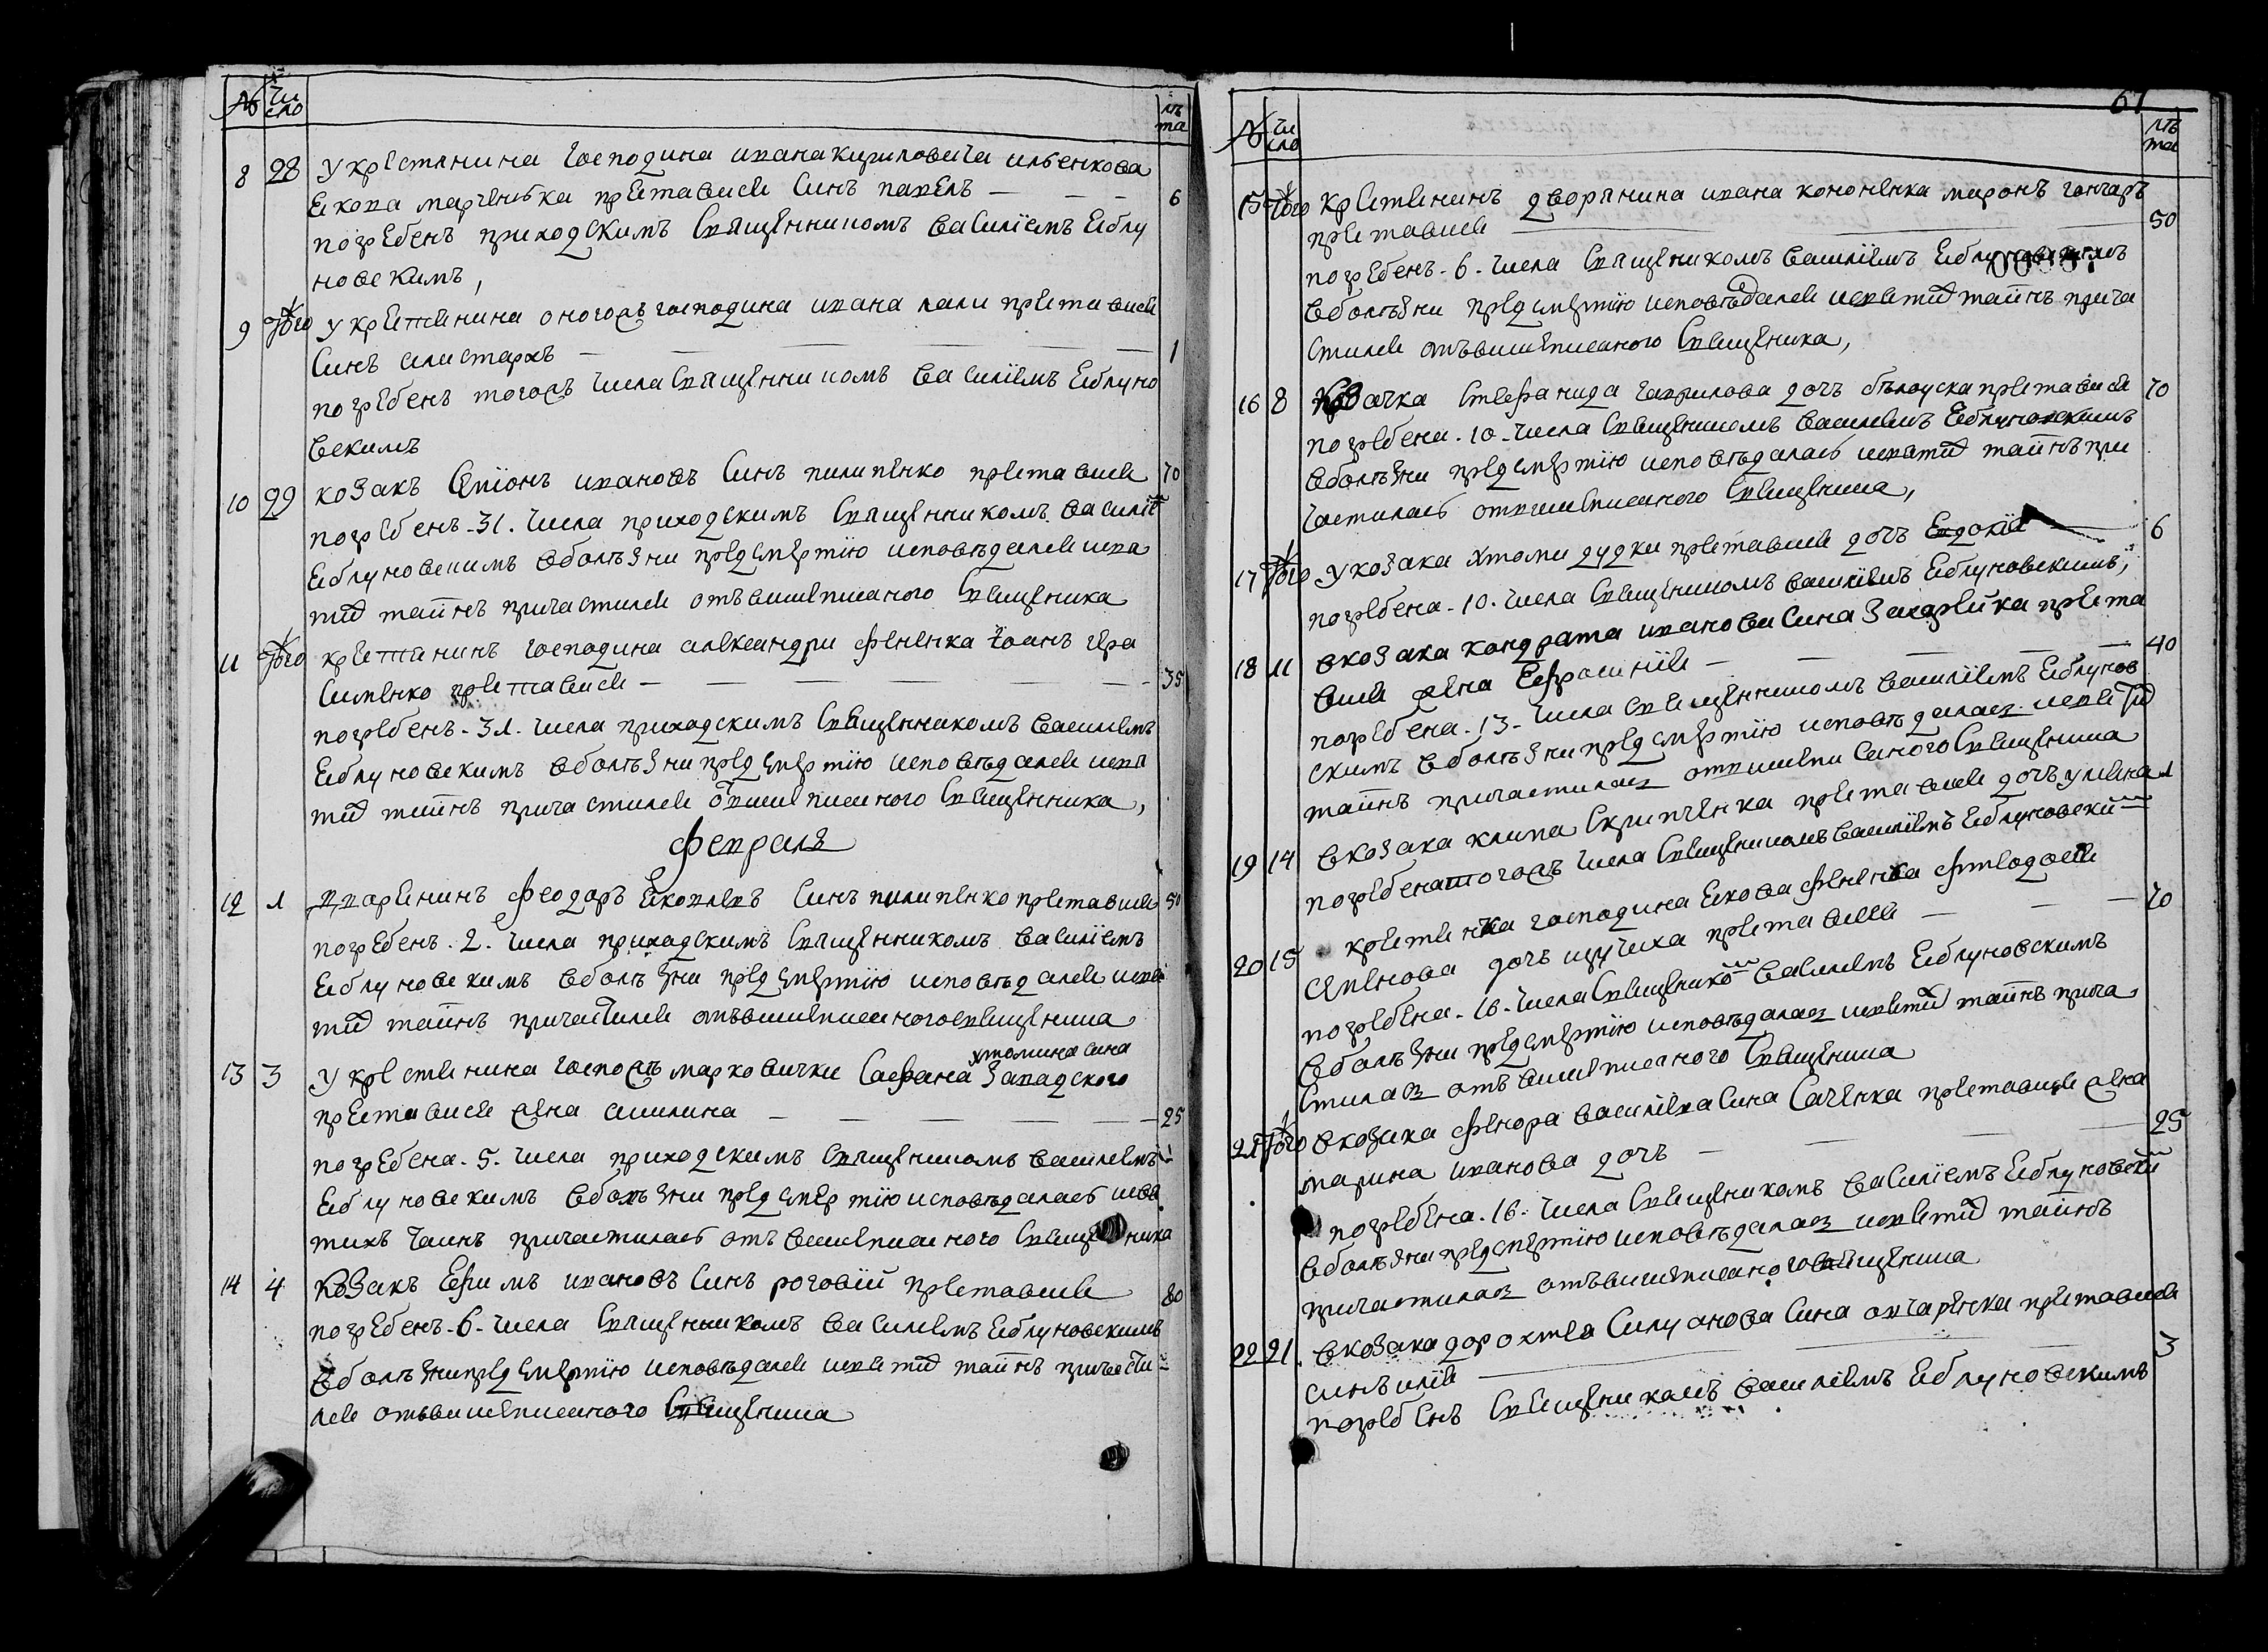 № Чи сло лѣ та
8 28 У крестянина господина ивана кириловича илбенкова
Якова марченка преставися Синъ павелъ — — 6
погребенъ приходскимъ Священникомъ василіемъ Яблу
новскимъ,
9 того У крестянина оногожъ господина ивана лали преставися
Синъ алистархъ — — — — — 1
погребенъ тогожъ числа Священникомъ василіемъ Яблуно
вскимъ
10 29 козакъ Семіонъ ивановъ Синъ пилипенко преставися 70
погребенъ. 31. числа приходскимъ Священникомъ василіе
Яблуновскимъ вболѣзни предсмертію исповѣдался исвя
тих таинъ причастился отъвишеписаного Священика
11 того крестянинъ господина александри фененка Іоанъ гера
Сименко преставися — — — — — 35
погребенъ. 31. числа приходскимъ Священникомъ василиемъ
Яблуновскимъ вболѣзни предсмертію исповѣдался исвя
тих таинъ причастился отвишеписаного Священника,
Февраля
12 1 дворянинъ Феодоръ Яковлевъ Синъ пилипенко преставися 50
погребенъ. 2. числа приходскимъ Священникомъ василіемъ
Яблуновскимъ вболѣзни предсмертію исповѣдался исвя
тих таинъ причастился отъвишеписаногосвященика
13 3 У крестянина господѣ марковички Сафана хтомина сина Западского
преставися жена акилина — — — — 25
погребена. 5. числа приходскимъ Священикомъ василиемъ
Яблуновскимъ вболѣзни предсмертію исповѣдалась исвя
тихъ таинъ причастилась отъ вишеписаного Священика
14 4 Козакъ Ефимъ ивановъ Синъ роговій преставися 80
погребенъ. 6. числа Священникомъ василиемъ Яблуновскимъ
вболѣзнипредсмертію исповѣдался исвятих таинъ причасти
лся отъвишеписаного Священика
67
№ Чи сло лѣ та
15 того Крестянинъ дворянина ивана кононенка миронъ гончаръ
преставися — — — 50
погребенъ. 6. числа Священикомъ василіемъ Яблуновскимъ
вболѣзни предсмертію исповѣдался исвятих таинъ прича
стился отъвишеписаного Священика,
16 8 Козачка Стефанида гаврилова дочъ бѣлоуска преставися 70
погребена. 10. числа Священикомъ василиемъ Яблуновскимъ
вболѣзни предсмертію исповѣдалась исвятих таинъ при
частилась отвишеписаного Священика,
17 того У козака хтоми дудки преставися дочъ Евдокія — 6
погребена. 10. числа Священикомъ василіемъ Яблуновскимъ,
18 11 вкозака кондрата иванова Сина Захарейка преста
вися жена Ефросинія — — — — 40
погребена. 13. числа Священникомъ василіемъ Яблунов
скимъ вболѣзни предсмертію исповѣдалась исвятих
таинъ причастилась отвишеписаного Священика
19 14 вкозака клима Скрипченка преставися дочъ улияна 1
погребенатогожъ числа Священикомъ василіемъ Яблуновским
20 15 крестянка господина Якова фененка Фтеодосия
Семенова дочъ щучиха преставися — — — 70
погребена. 16. числа Священиком василиемъ Яблуновскимъ
вболѣзни предсмертію исповѣдалась исвятих таинъ прича
стилась отъ вишеписаного Священика
21 того вкозака Феиора василіева Сина Саченка преставися жена
марина иванова дочъ — — — 25
погребена. 16. числа Священикомъ василіемъ Яблуновским
вболѣзни предсмертію исповѣдалась исвятих таинъ
причастилась отъвишеписаногосвященика
22 21. вкозака дорохтея Силуанова Сина овчаренка преставися
синъ илія — — — 3
погребенъ Священикомъ василіемъ Яблуновскимъ